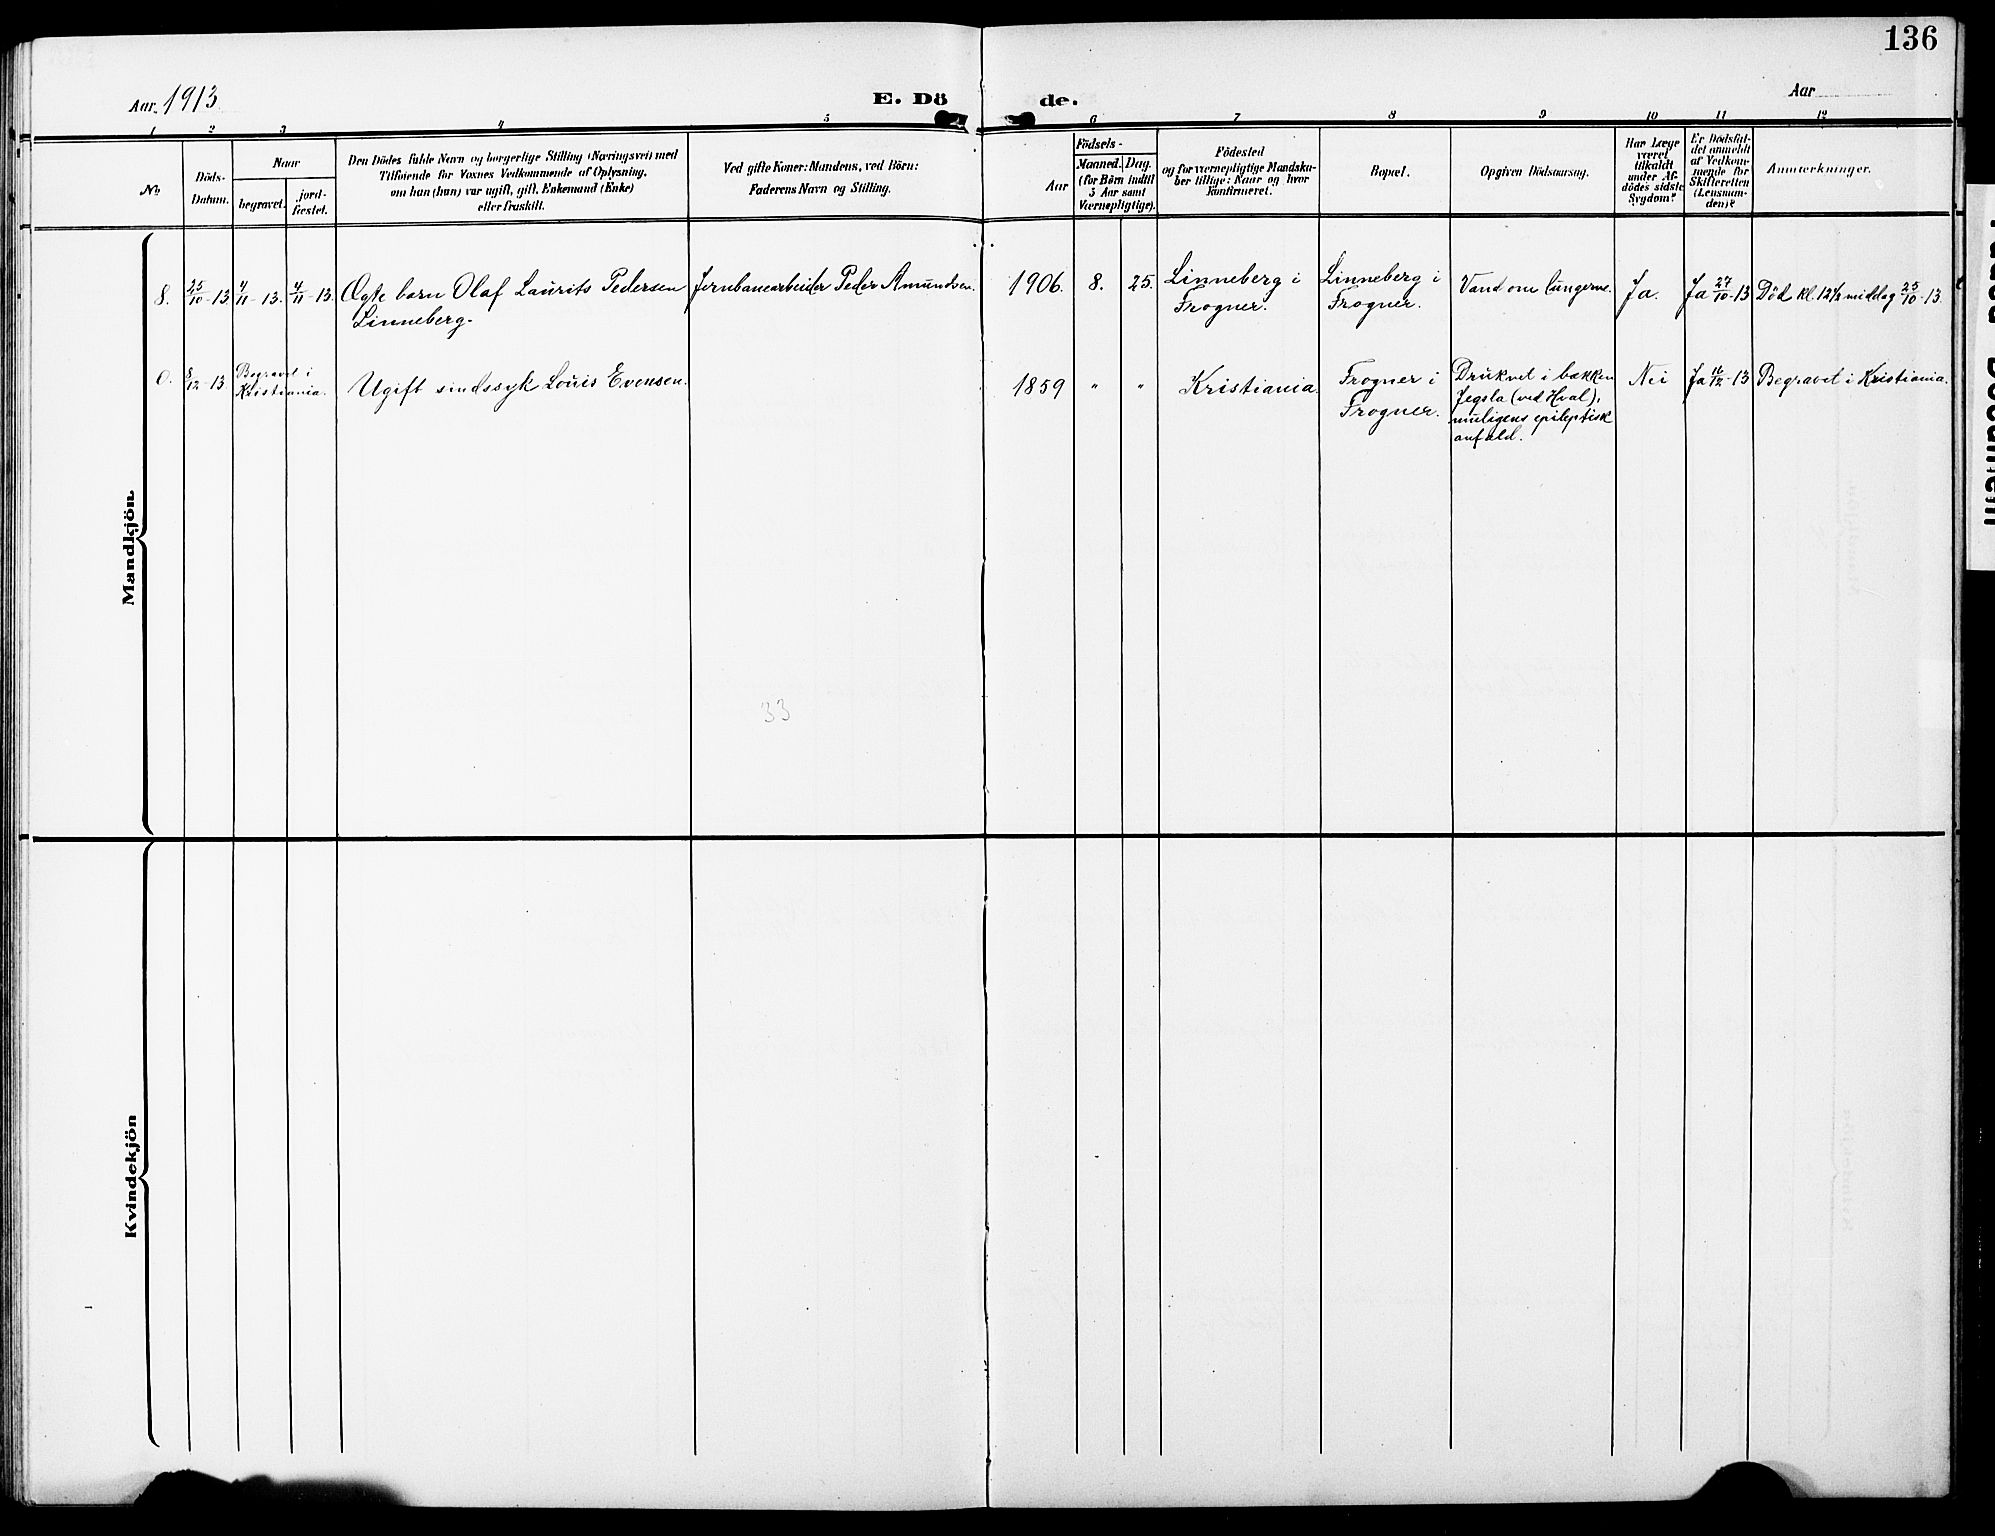 136
Aar 1913
E. Dö de.
Aar
1 2 3 4 5 6 7 8 9 10 11 12
No
Döds-
Datum.
Naar
begravet.
jord-
fæstet.
Den Dödes fulde Navn og borgerlige Stilling (Næringsvei) med
Tilföiende for Voxnes Vedkommende af Oplysning,
om han (hun) var ugift, gift, Enkemand (Enke)
eller fraskilt.
Ved gifte Koner: Mandens, ved Börn:
Faderens Navn og Stilling.
Födsels-
Aar
Maaned. Dag.
(for Börn indtil
5 Aar samt
Værnepligtige).
Födested
og for værnepligtige Mandska-
ber tillige: Naar og hvor
Konfirmeret.
Bopæl.
Opgiven Dödsaarsag.
Har Læge
været
tilkaldt
under Af-
dödes sidste
Sygdom?
Er Dödsfal-
det anmeldt
af Vedkom-
mende for
Skifteretten
(Lensman-
den)?
Anmærkninger.
Mandkjön.
8. 25/10-13 4/11-13. 4/11-13. Ægte barn Olaf Laurits Pedersen Jernbanearbeider Peder Amundsen. 1906. 8. 25. Linneberg i Linneberg i Vand om lungerne. Ja. Ja 27/10-13 Død kl. 12½ middag 25/10-13.
Linneberg. Frogner. Frogner.
0. 8/12-13 Begravet i
Kristiania. Ugift sindssyk Louis Evensen. 1859 " " Kristiania. Frogner i
Frogner. Druknet i bækken
Jegsla (ved Hval),
muligens epileptisk
anfald. Nei Ja 11/12-13 Begravet i Kristiania.
33
Kvindekjön